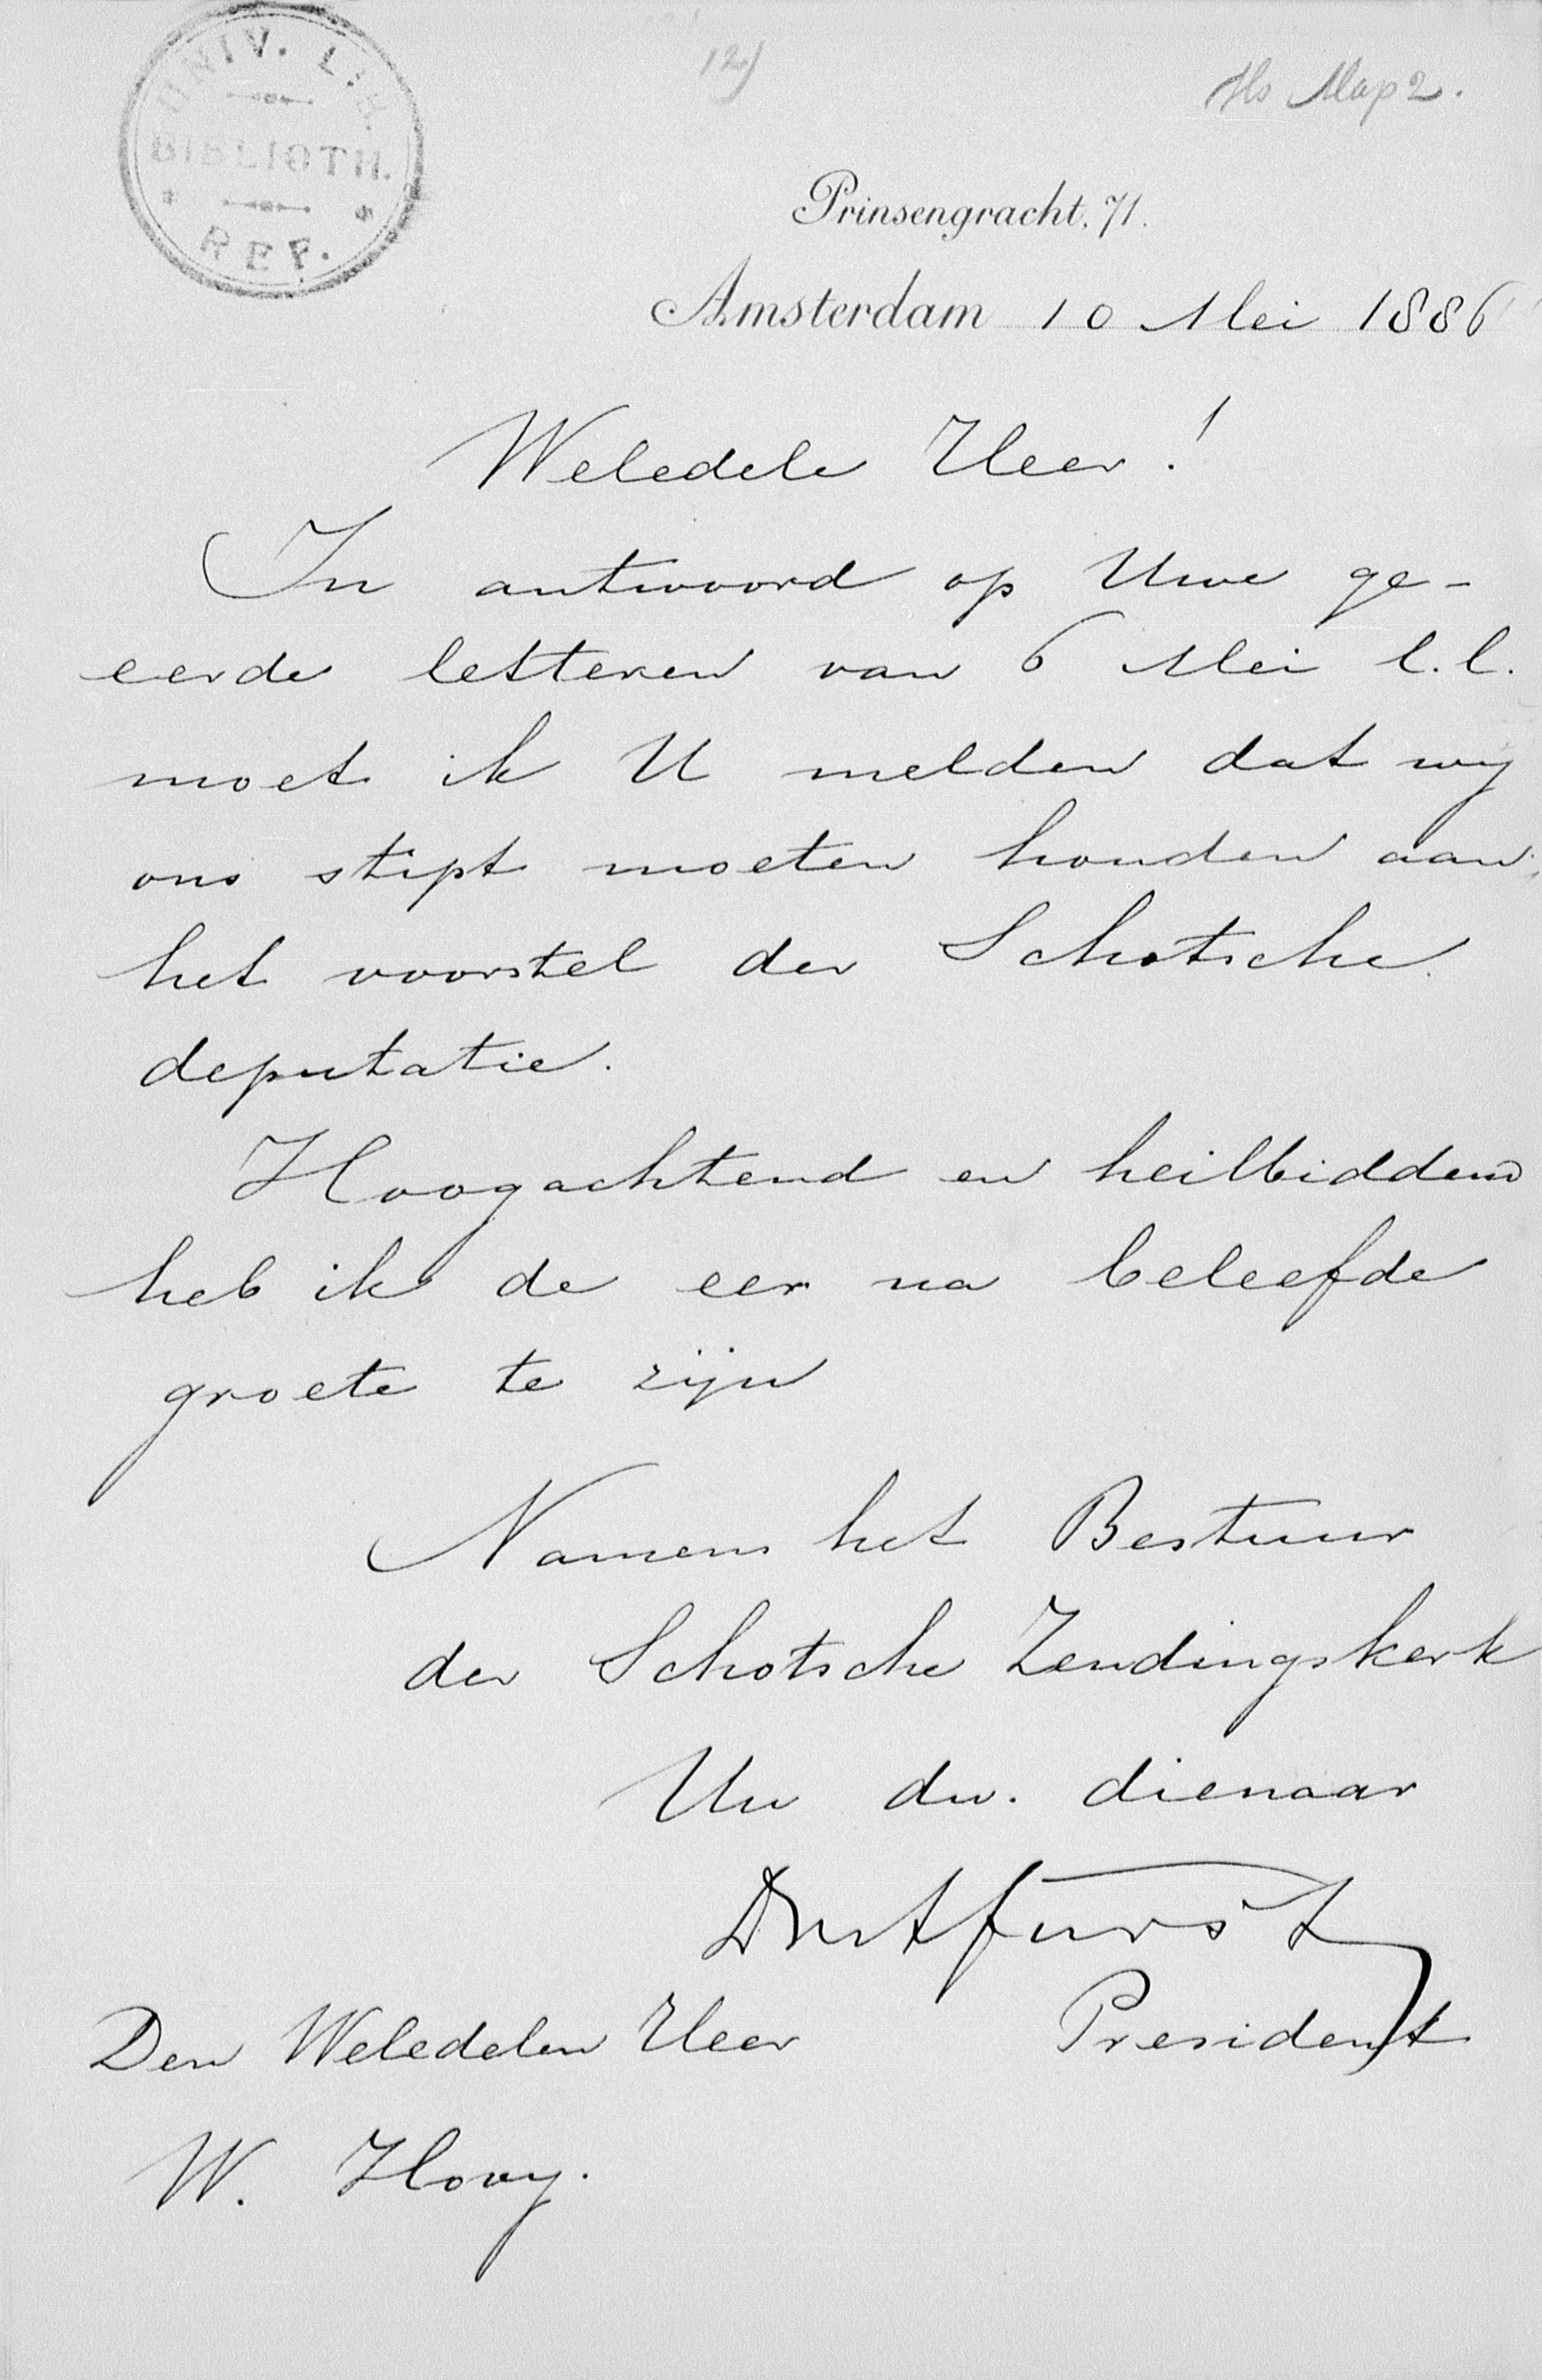 UNIV. LIB.
BIBLIOTH.
REF.
12)
Hs Map 2.
Prinsengracht. 71.
Amsterdam 10 Mei 1886
Weledele Heer!
In antwoord op Uwe ge-
eerde letteren van 6 Mei l.l.
moet ik U melden dat wy
ons stipt moeten houden aan
het voorstel der Schotsche
deputatie.
Hoogachtend en heilbiddend
heb ik de eer na beleefde
groete te zijn
Namens het Bestuur
der Schotsche Zendingskerk
Uw dw. dienaar
President
Den Weledelen Heer
W. Hovy.